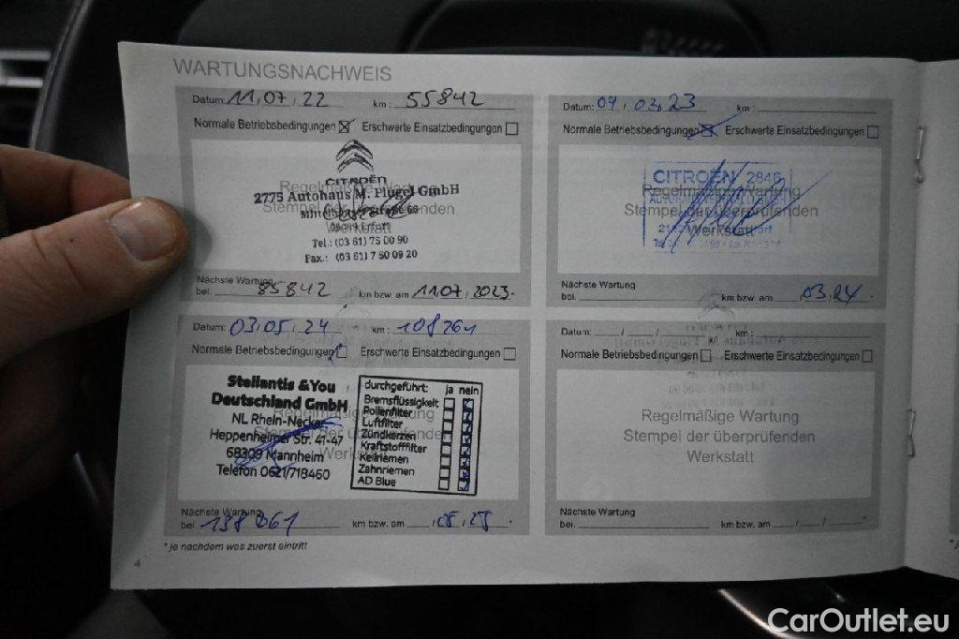 WARTUNGSNACHWEIS
Datum: 11.07.22 km: 55842
Normale Betriebsbedingungen Erschwerte Einsatzbedingungen
CITROËN
2775 Autohaus M. Plügel GmbH
Regelmäßige Wartung
Stempel der überprüfenden
Werkstatt
Tel.: (03 61) 75 00 90
Fax.: (03 61) 7 50 09 20
Nächste Wartung
bei 85842 km bzw am 11.07.2023.
Datum: 04.03.23 km:
Normale Betriebsbedingungen Erschwerte Einsatzbedingungen
CITROËN 2846
Regelmäßige Wartung
Stempel der überprüfenden
Werkstatt
Nächste Wartung
bei. km bzw am 03.24
Datum: 03.05.24 km: 108261
Normale Betriebsbedingungen Erschwerte Einsatzbedingungen
Stellantis &You
Deutschland GmbH
NL Rhein-Neckar
Heppenheimer Str. 41-47
68309 Mannheim
Telefon 0621/718460
durchgeführt: ja nein
Bremsflüssigkeit
Pollenfilter
Luftfilter
Zündkerzen
Kraftstofffilter
Keilriemen
Zahnriemen
AD Blue
Nächste Wartung
bei: 138261 km bzw. am .05.25.
Datum: / / km:
Normale Betriebsbedingungen Erschwerte Einsatzbedingungen
Regelmäßige Wartung
Stempel der überprüfenden
Werkstatt
Nächste Wartung
bei. km bzw. am / /
* je nachdem was zuerst eintritt
4
CarOutlet.eu